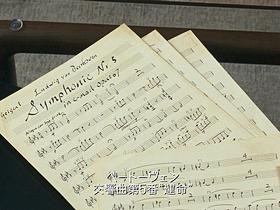 Geige I
Ludwig van Beethoven
Symphonie No. 5
in c-moll opus 67
Allegro con brio
ベートーヴェン
交響曲第5番“運命”